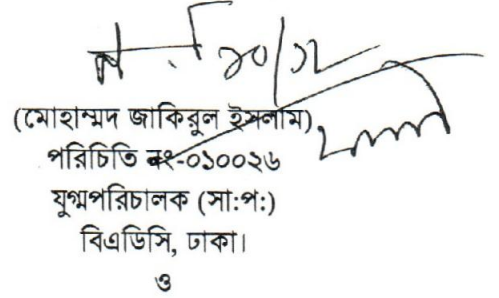 ১০/১২
(মোহাম্মদ জাকিরুল ইসলাম)
পরিচিতি নং-০১০০২৬
যুগ্মপরিচালক (সা:প:)
বিএডিসি, ঢাকা।
ও